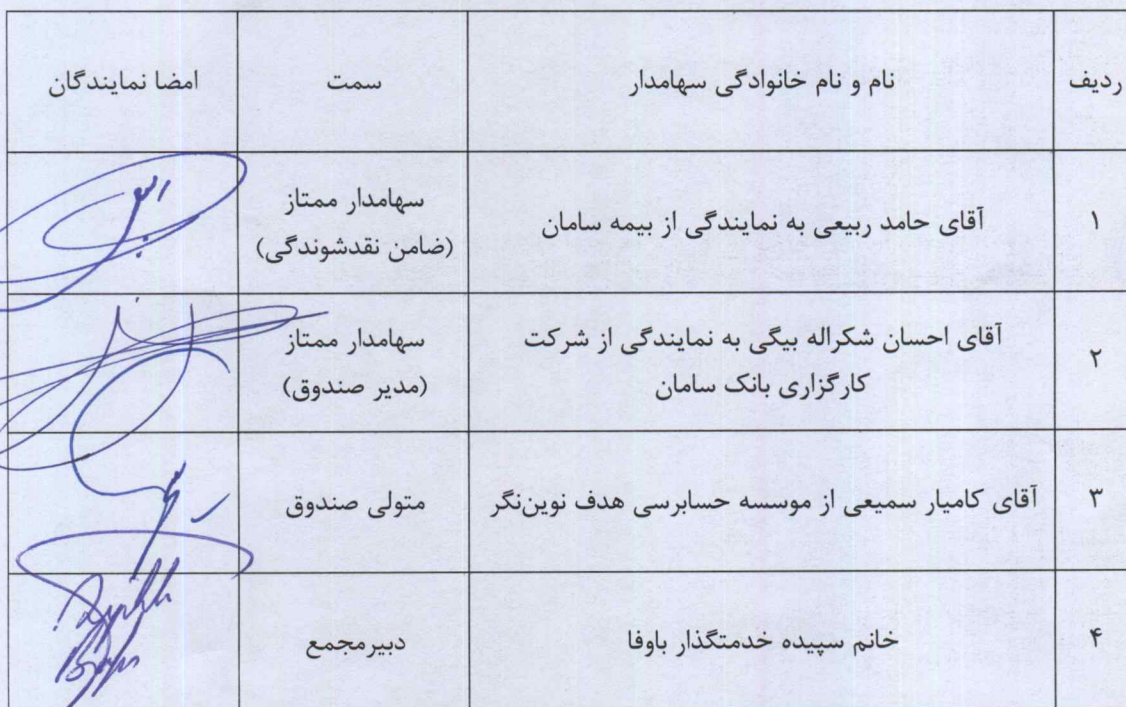 ردیف
نام و نام خانوادگی سهامدار
سمت
امضا نمایندگان
۱
آقای حامد ربیعی به نمایندگی از بیمه سامان
سهامدار ممتاز
(ضامن نقدشوندگی)
۲
آقای احسان شکراله بیگی به نمایندگی از شرکت
کارگزاری بانک سامان
سهامدار ممتاز
(مدیر صندوق)
۳
آقای کامیار سمیعی از موسسه حسابرسی هدف نوین‌نگر
متولی صندوق
۴
خانم سپیده خدمتگذار باوفا
دبیرمجمع